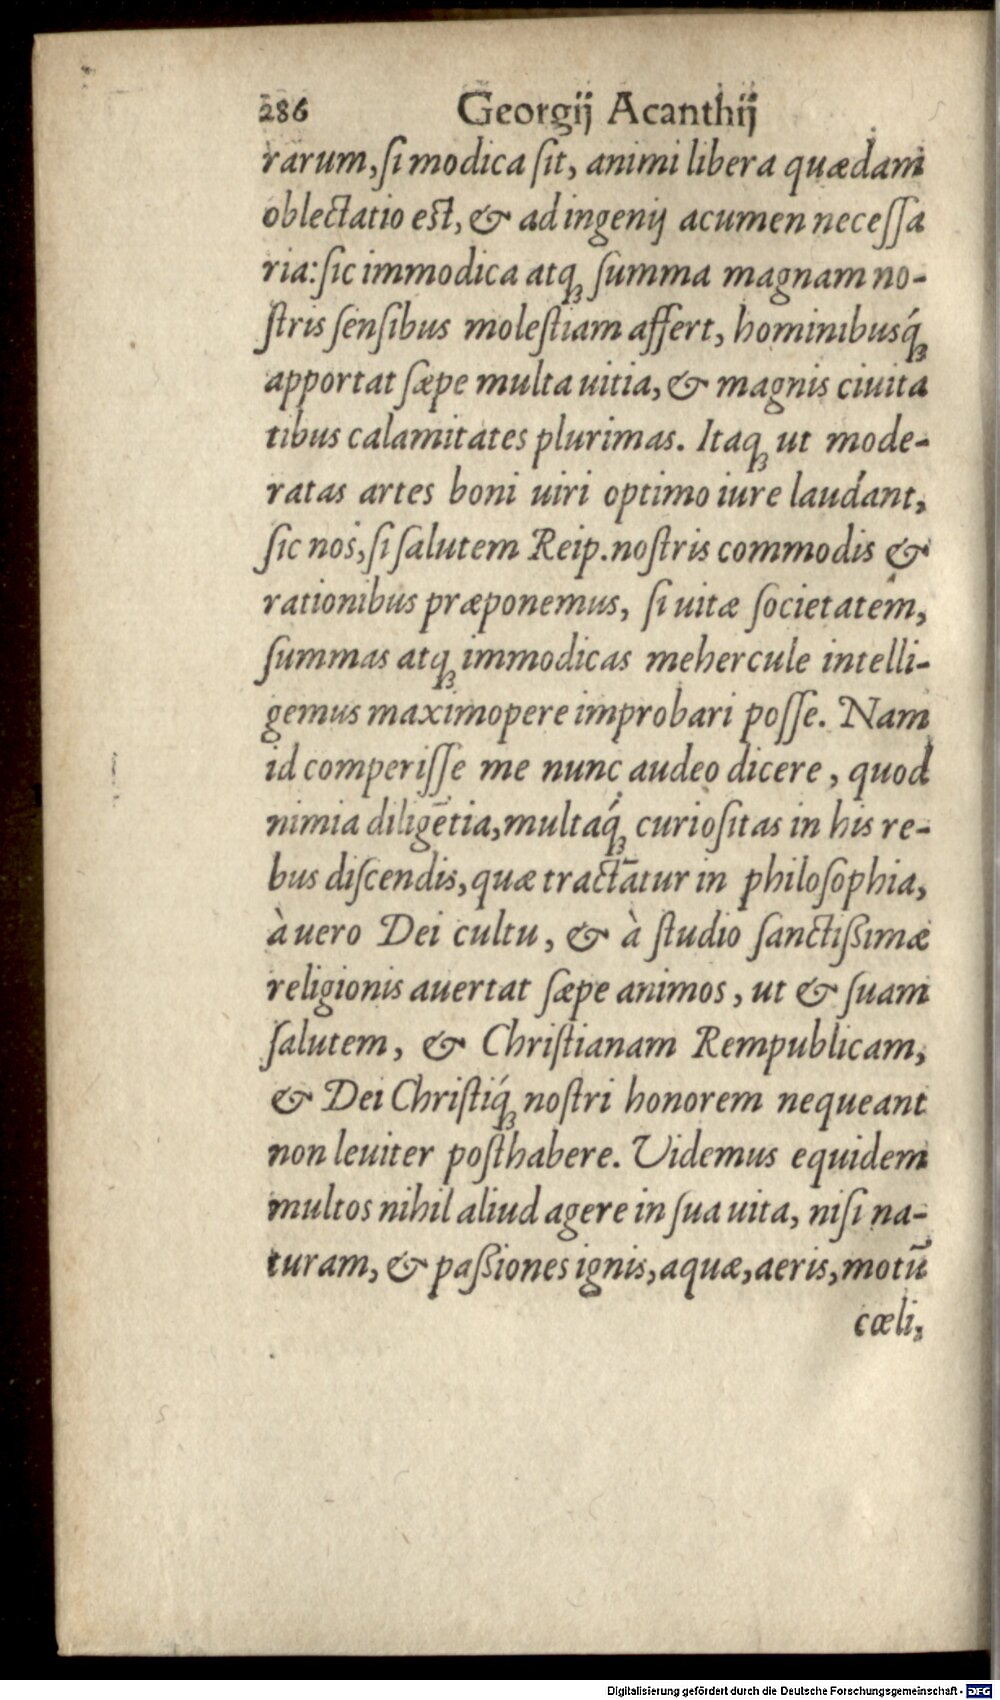 286 Georgij Acanthij
rarum, ſi modica ſit, animi libera quædam
oblectatio est, & ad ingenij acumen neceſſa
ria: ſic immodica atq; ſumma magnam no-
ſtris ſenſibus moleſtiam affert, hominibusq́;
apportat ſæpe multa uitia, & magnis ciuita
tibus calamitates plurimas. Itaq; ut mode-
ratas artes boni uiri optimo iure laudant,
ſic nos, ſi ſalutem Reip. noſtris commodis &
rationibus præponemus, ſi uitæ ſocietatem,
ſummas atq; immodicas mehercule intelli-
gemus maximopere improbari poſſe. Nam
id comperiſſe me nunc audeo dicere, quod
nimia diligẽtia, multaq́; curioſitas in his re-
bus diſcendis, quæ tractãtur in philoſophia,
à uero Dei cultu, & à ſtudio ſanctißimæ
religionis auertat ſæpe animos, ut & ſuam
ſalutem, & Chriſtianam Rempublicam,
& Dei Chriſtiq́; noſtri honorem nequeant
non leuiter poſthabere. Uidemus equidem
multos nihil aliud agere in ſua uita, niſi na-
turam, & paßiones ignis, aquæ, aeris, motũ
cœli,
Digitalisierung gefördert durch die Deutsche Forschungsgemeinschaft - DFG